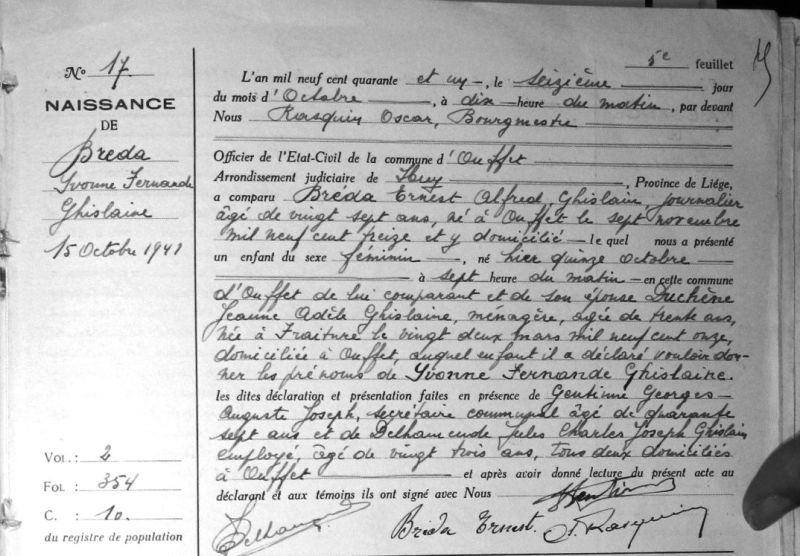 5e feuillet
N° 17.
NAISSANCE
DE
Breda
Yvonne Fernande
Ghislaine
15 Octobre 1941
L'an mil neuf cent quarante et un, le seizième jour
du mois d'Octobre, à dix heure du matin, par devant
Nous Rasquin Oscar, Bourgmestre
Officier de l'Etat-Civil de la commune d'Ouffet
Arrondissement judiciaire de Huy, Province de Liége,
a comparu Bréda Ernest Alfred, Ghislain, journalier
âgé de vingt sept ans, né à Ouffet le sept novembre
mil neuf cent treize et y domicilié — le quel nous a présenté
un enfant du sexe féminin —, né hier quinze octobre
à sept heure du matin — en cette commune
d'Ouffet de lui comparant et de son épouse Duchêne
Jeanne Adèle Ghislaine, ménagère, âgée de trente ans,
née à Fraiture le vingt deux mars mil neuf cent onze,
domiciliée à Ouffet, auquel enfant il a déclaré vouloir don-
ner les prénoms de Yvonne Fernande Ghislaine.
les dites déclaration et présentation faites en présence de Gentinne Georges
Auguste Joseph, secrétaire communal âgé de quarante
sept ans et de Delhamende Jules Charles Joseph Ghislain
employé, âgé de vingt trois ans, tous deux domiciliés
à Ouffet — et après avoir donné lecture du présent acte au
déclarant et aux témoins ils ont signé avec Nous
Breda Ernest. O. Rasquin
VOL. : 2
FOL : 354
C. : 10.
du registre de population